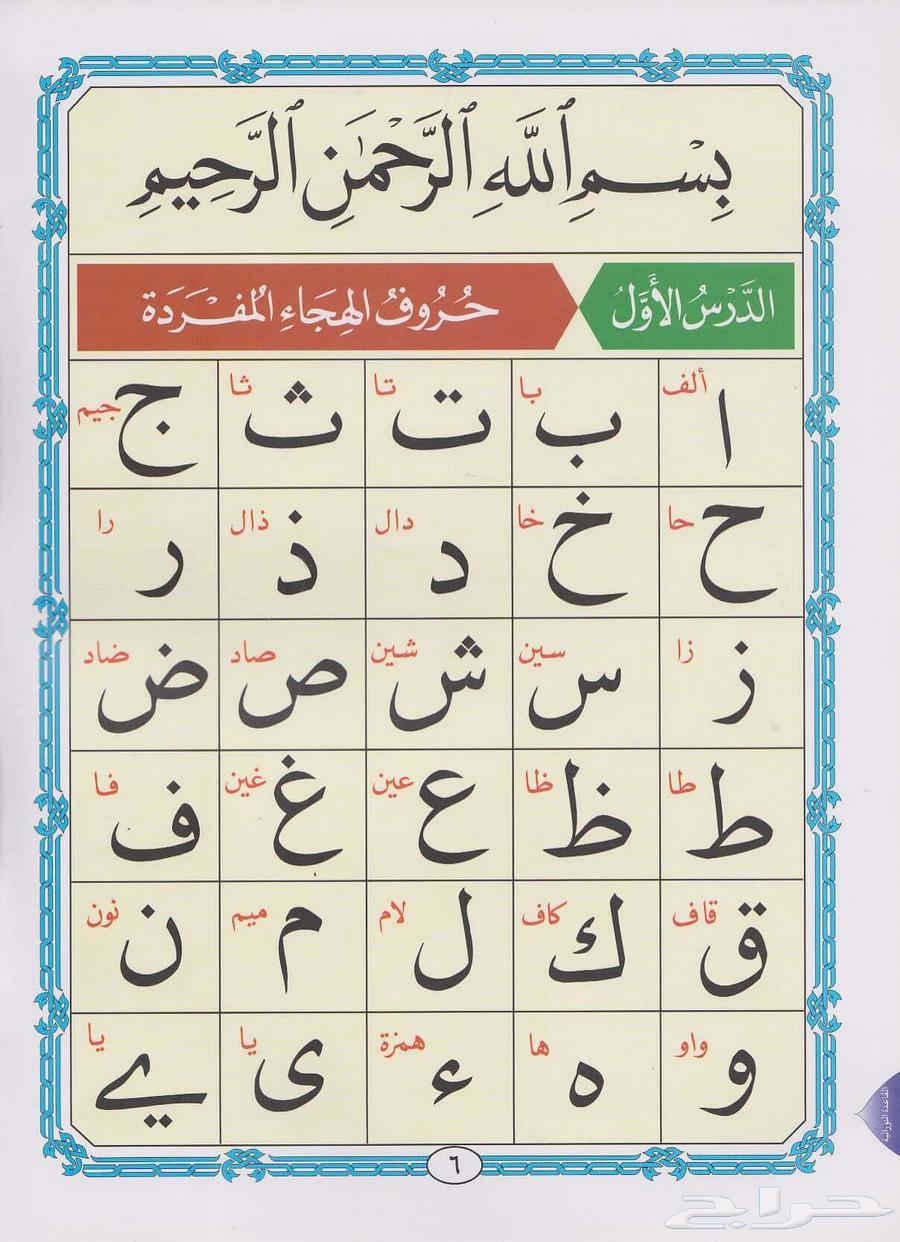 بِسْمِ ٱللَّهِ ٱلرَّحْمَٰنِ ٱلرَّحِيمِ
الدَّرْسُ الأَوَّلُ
حُرُوفُ الهِجَاءِ المُفْرَدَة
ألف ا با ب تا ت ثا ث جيم ج
حا ح خا خ دال د ذال ذ را ر
زا ز سين س شين ش صاد ص ضاد ض
طا ط ظا ظ عين ع غين غ فا ف
قاف ق كاف ك لام ل ميم م نون ن
واو و ها ه همزة ء يا ى يا ے
٦
القاعدة النورانية
حراج